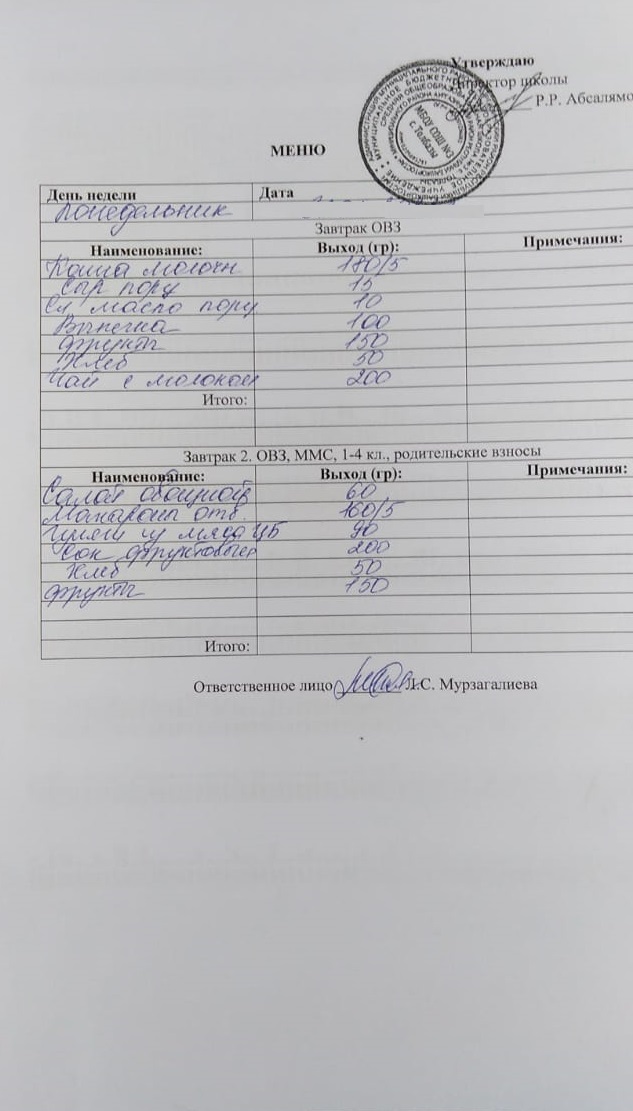 Утверждаю
Директор школы
Р.Р. Абсалямо
МБОУ СОШ №2
с. Толбазы
МЕНЮ
День недели Дата
Понедельник
Завтрак ОВЗ
Наименование: Выход (гр): Примечания:
Каша молочн 180/5
Сыр порц 15
Сл масло порц 10
100
Фрукты 150
Хлеб 50
Чай с молоком 200
Итого:
Завтрак 2. ОВЗ, ММС, 1-4 кл., родительские взносы
Наименование: Выход (гр): Примечания:
Салат овощной 60
Макароны отв. 160/5
90
Сок фруктовый 200
Хлеб 50
Фрукты 150
Итого:
Ответственное лицо Л.С. Мурзагалиева